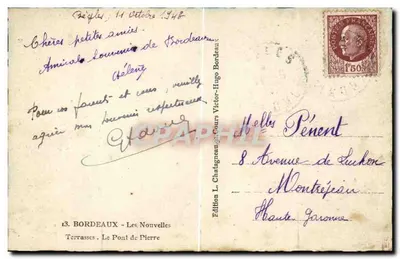 Bègles, 11 Octobre 1946
Chères petites amies.
Amical souvenir de Bordeaux.
Hélène
Pour vos parents et vous, veuillez
agréer mon souvenir respectueux
CPARAMA.COM
13. BORDEAUX - Les Nouvelles
Terrasses. Le Pont de Pierre
Edition L. Chatagneau, Cours Victor-Hugo Bordeaux
1F50
Melles Pénent
8 Avenue de Luchon
Montréjeau
Haute Garonne